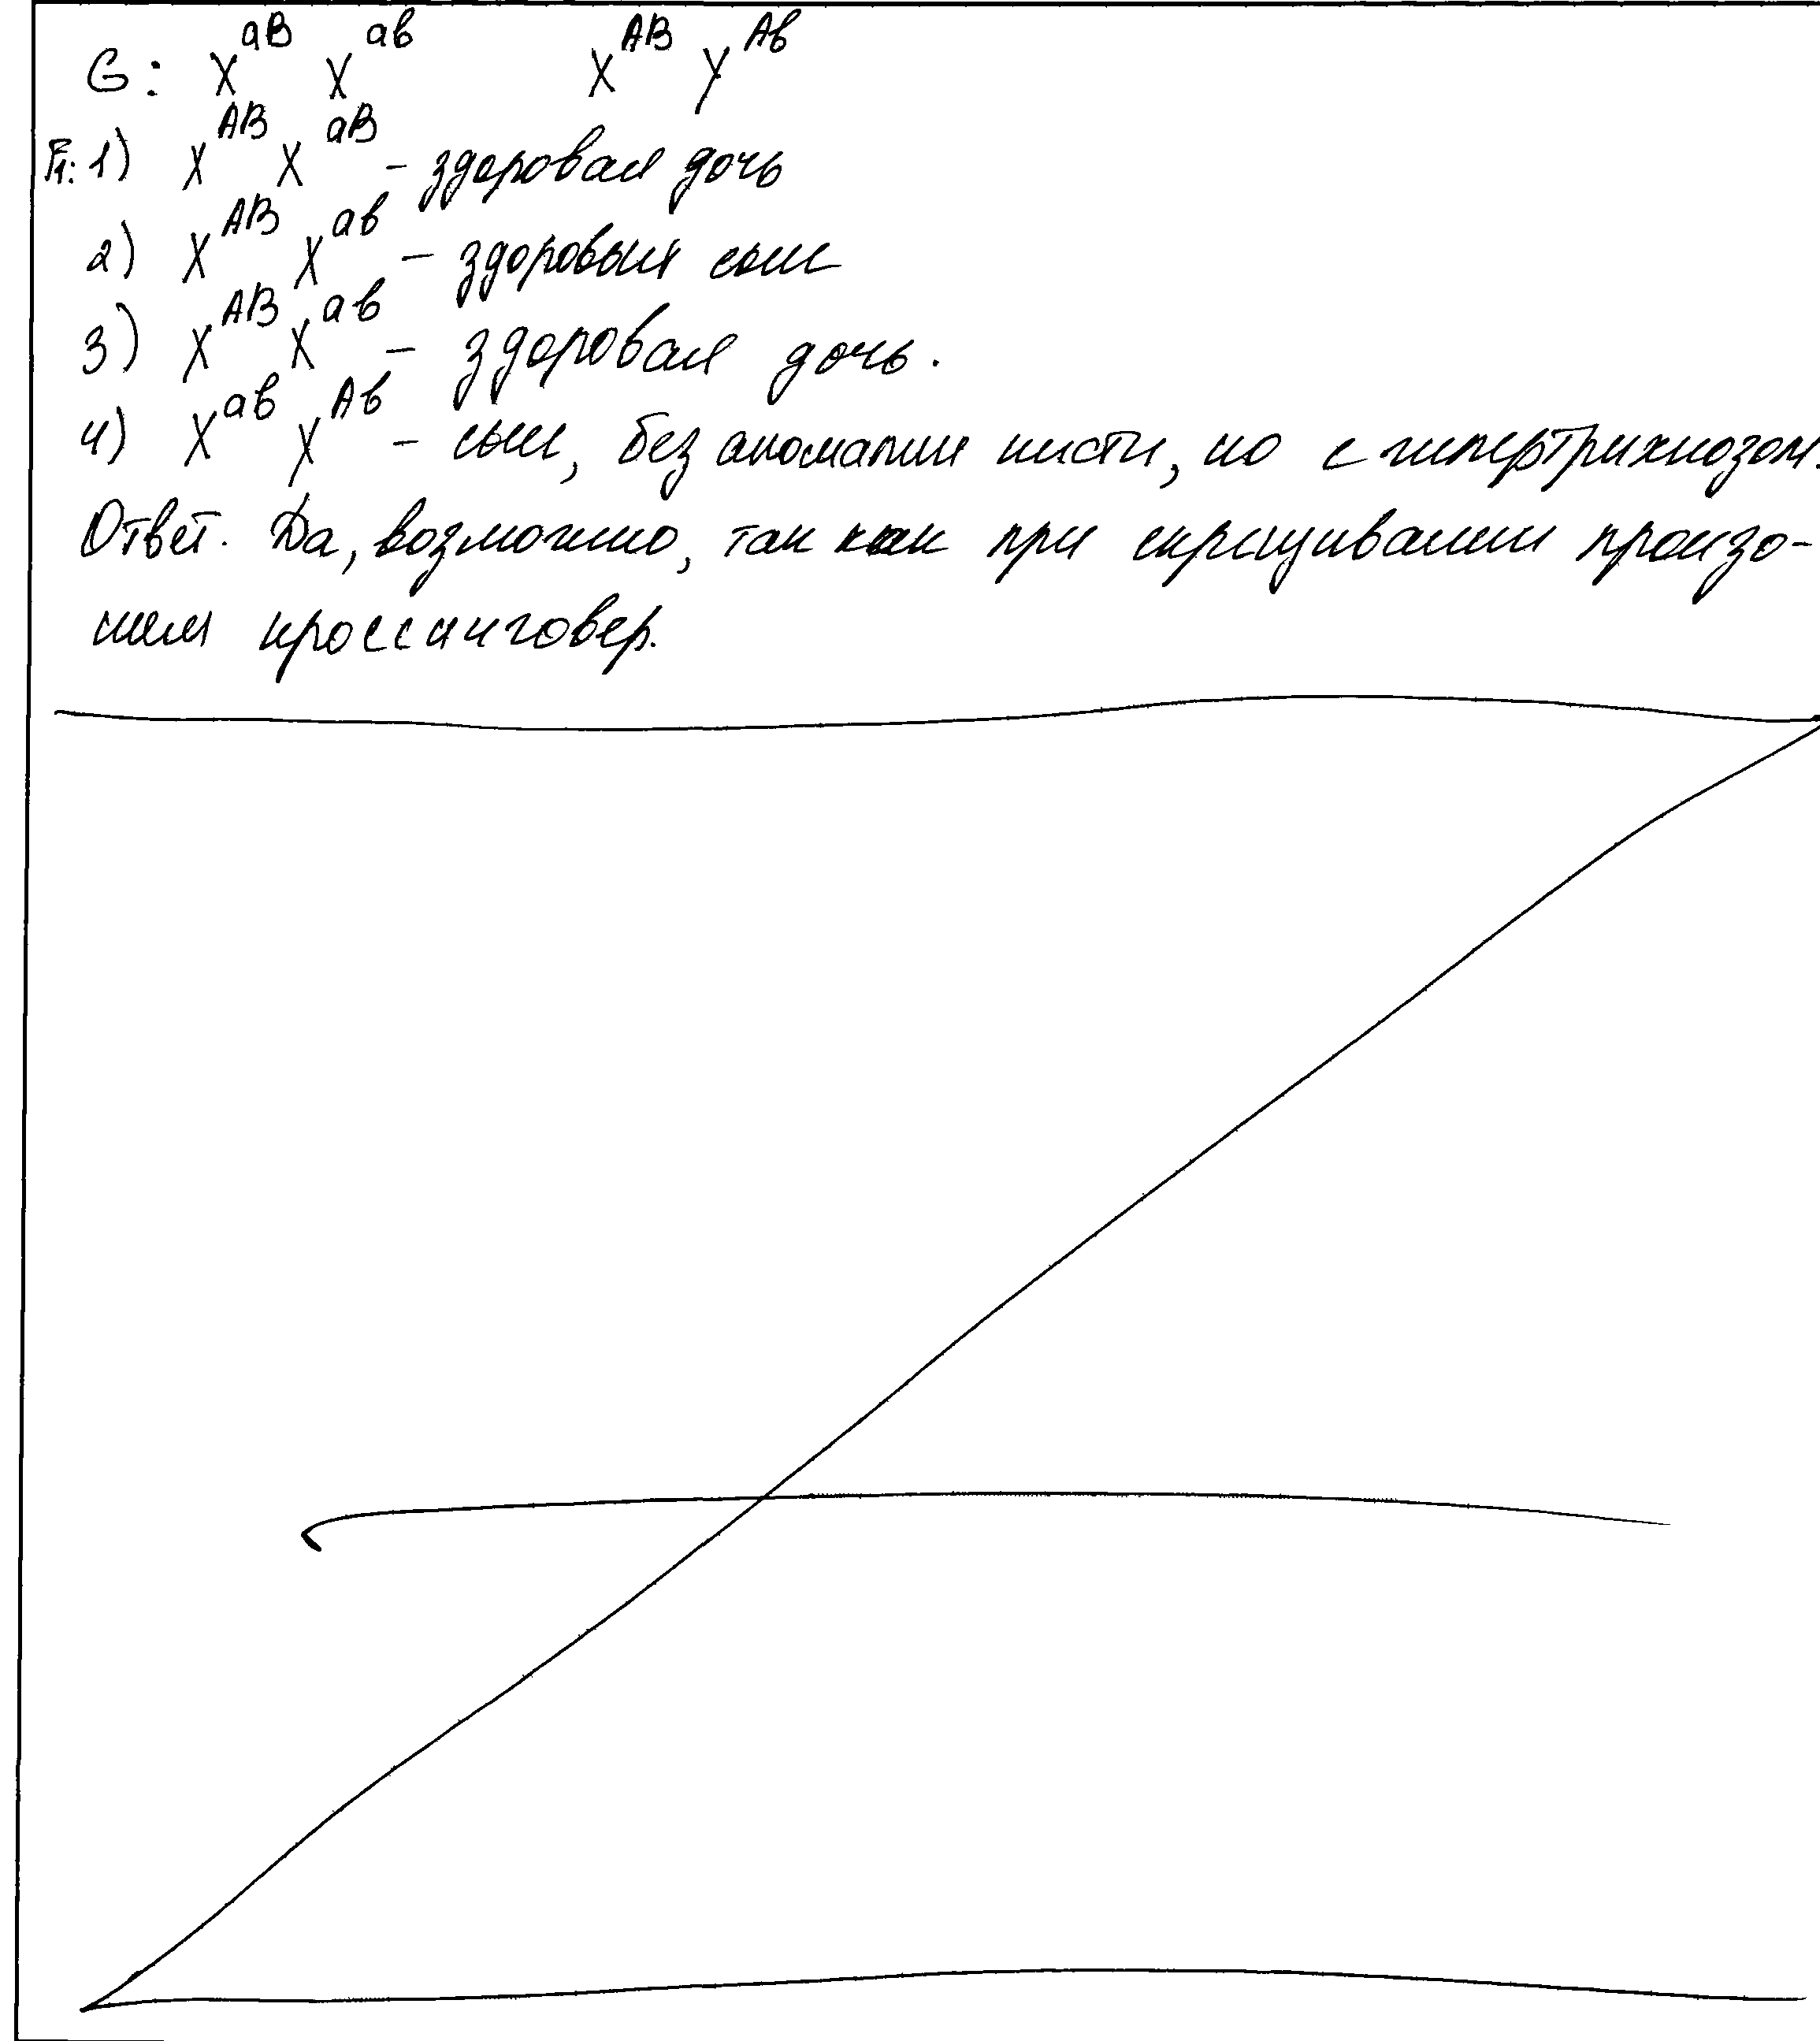 G: X^aB X^ab X^AB Y^Ab
F1: 1) X^AB X^aB - здоровая дочь
2) X^AB X^ab - здоровый сын
3) X^AB X^ab - здоровая дочь.
4) X^ab Y^Ab - сын, без аномалии кисти, но с гипертрихнозом.
Ответ. Да, возможно, так как при скрещивании произо-
шел кроссинговер.